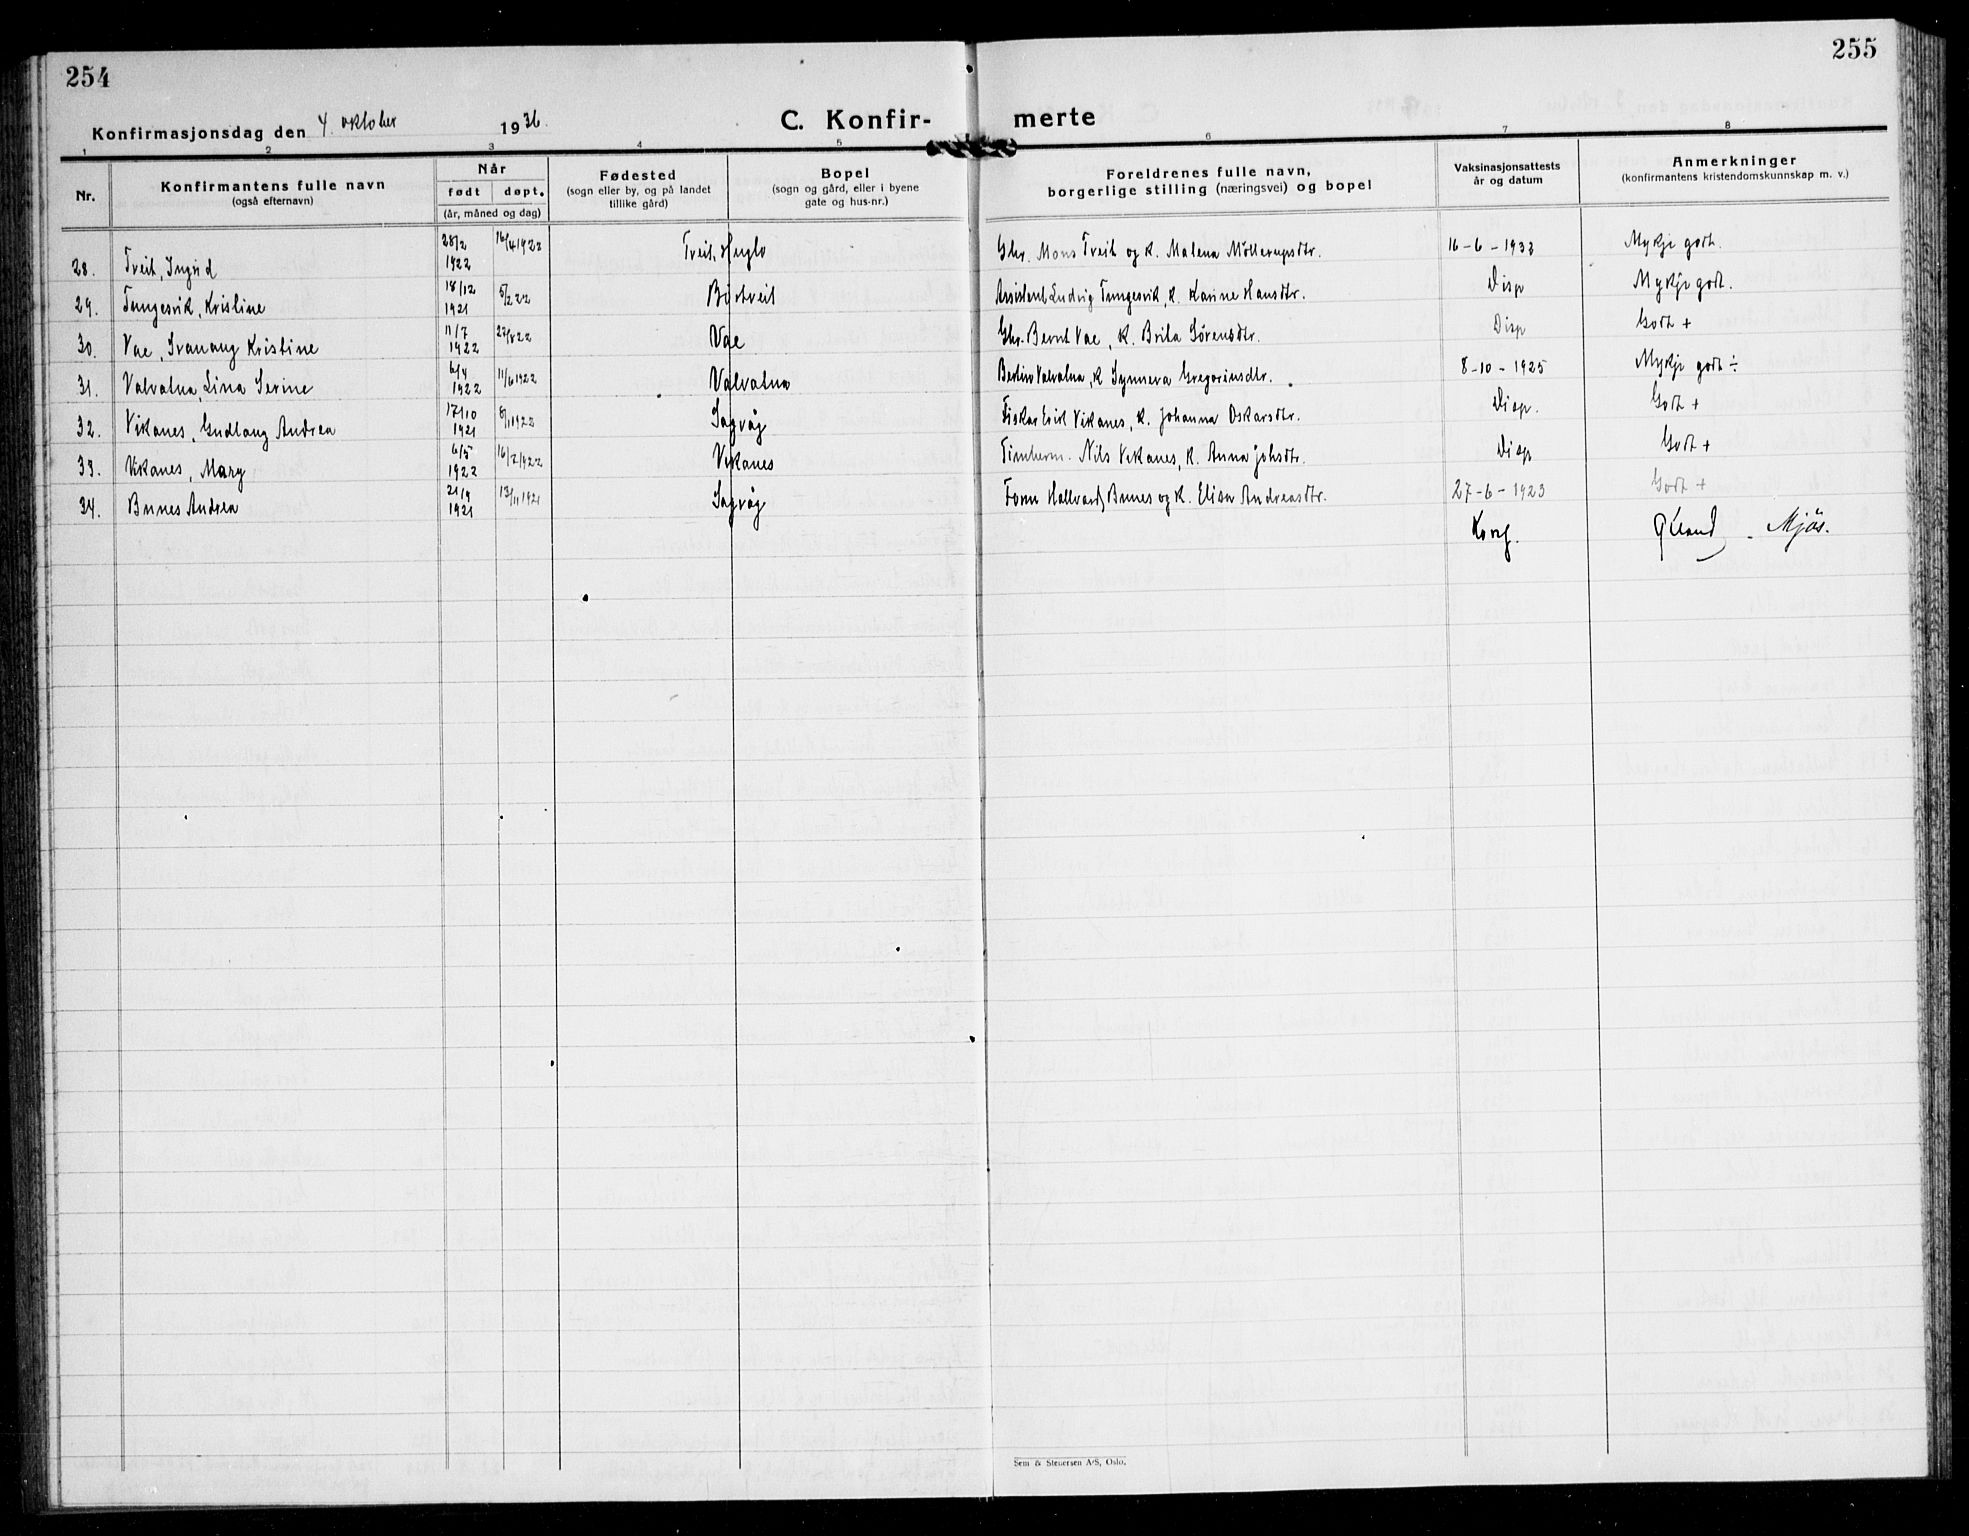 254
Konfirmasjonsdag den 4. oktober 1936.
C. Konfir-
merte
255
1 2 3 4 5 6 7 8
Nr.
Konfirmantens fulle navn
(også efternavn)
Når
født døpt.
(år, måned og dag)
Fødested
(sogn eller by, og på landet
tillike gård)
Bopel
(sogn og gård, eller i byene
gate og hus-nr.)
Foreldrenes fulle navn,
borgerlige stilling (næringsvei) og bopel
Vaksinasjonsattests
år og datum
Anmerkninger
(konfirmantens kristendomskunnskap m. v.)
28. Tveit, Ingrid 28/2 1922 16/4 1922 Tveit, Huglo Gbr. Mons Tveit og k. Malena Möllerupsdtr. 16-6-1933 Mykje godt.
29. Tungesvik, Kristine 18/12 1921 5/2 22 Börtveit Assistent Ludvig Tungesvik, k. Karine Hansdtr. Disp Mykje godt.
30. Vae, Svanaug Kristine 11/7 1922 27/8 22 Vae Gbr. Bernt Vae, k. Brita Sørensdtr. Disp Godt +
31. Valvatna, Lina Serine 6/4 1922 11/6 1922 Valvatna Valvatna, k Synneva Gregoriusdtr. 8-10-1925 Mykje godt ÷
32. Vikanes, Gudlaug Andrea 17/10 1921 Sagvåg Fiskar Eirik Vikanes, k. Johanna Oskarsdtr. Disp. Godt +
33. Vikanes, Mary 6/5 1922 16/7 1922 Vikanes Timherm. Nils Vikanes, k. Anna Johsdtr. Disp Godt +
34. Bunes Andrea 21/9 1921 13/11 1921 Sagvåg Form Hallvard Bunes og k. Elisa Andreasdtr. 27-6-1923 Godt +
Mjös.
Sem & Stenersen A/S, Oslo.